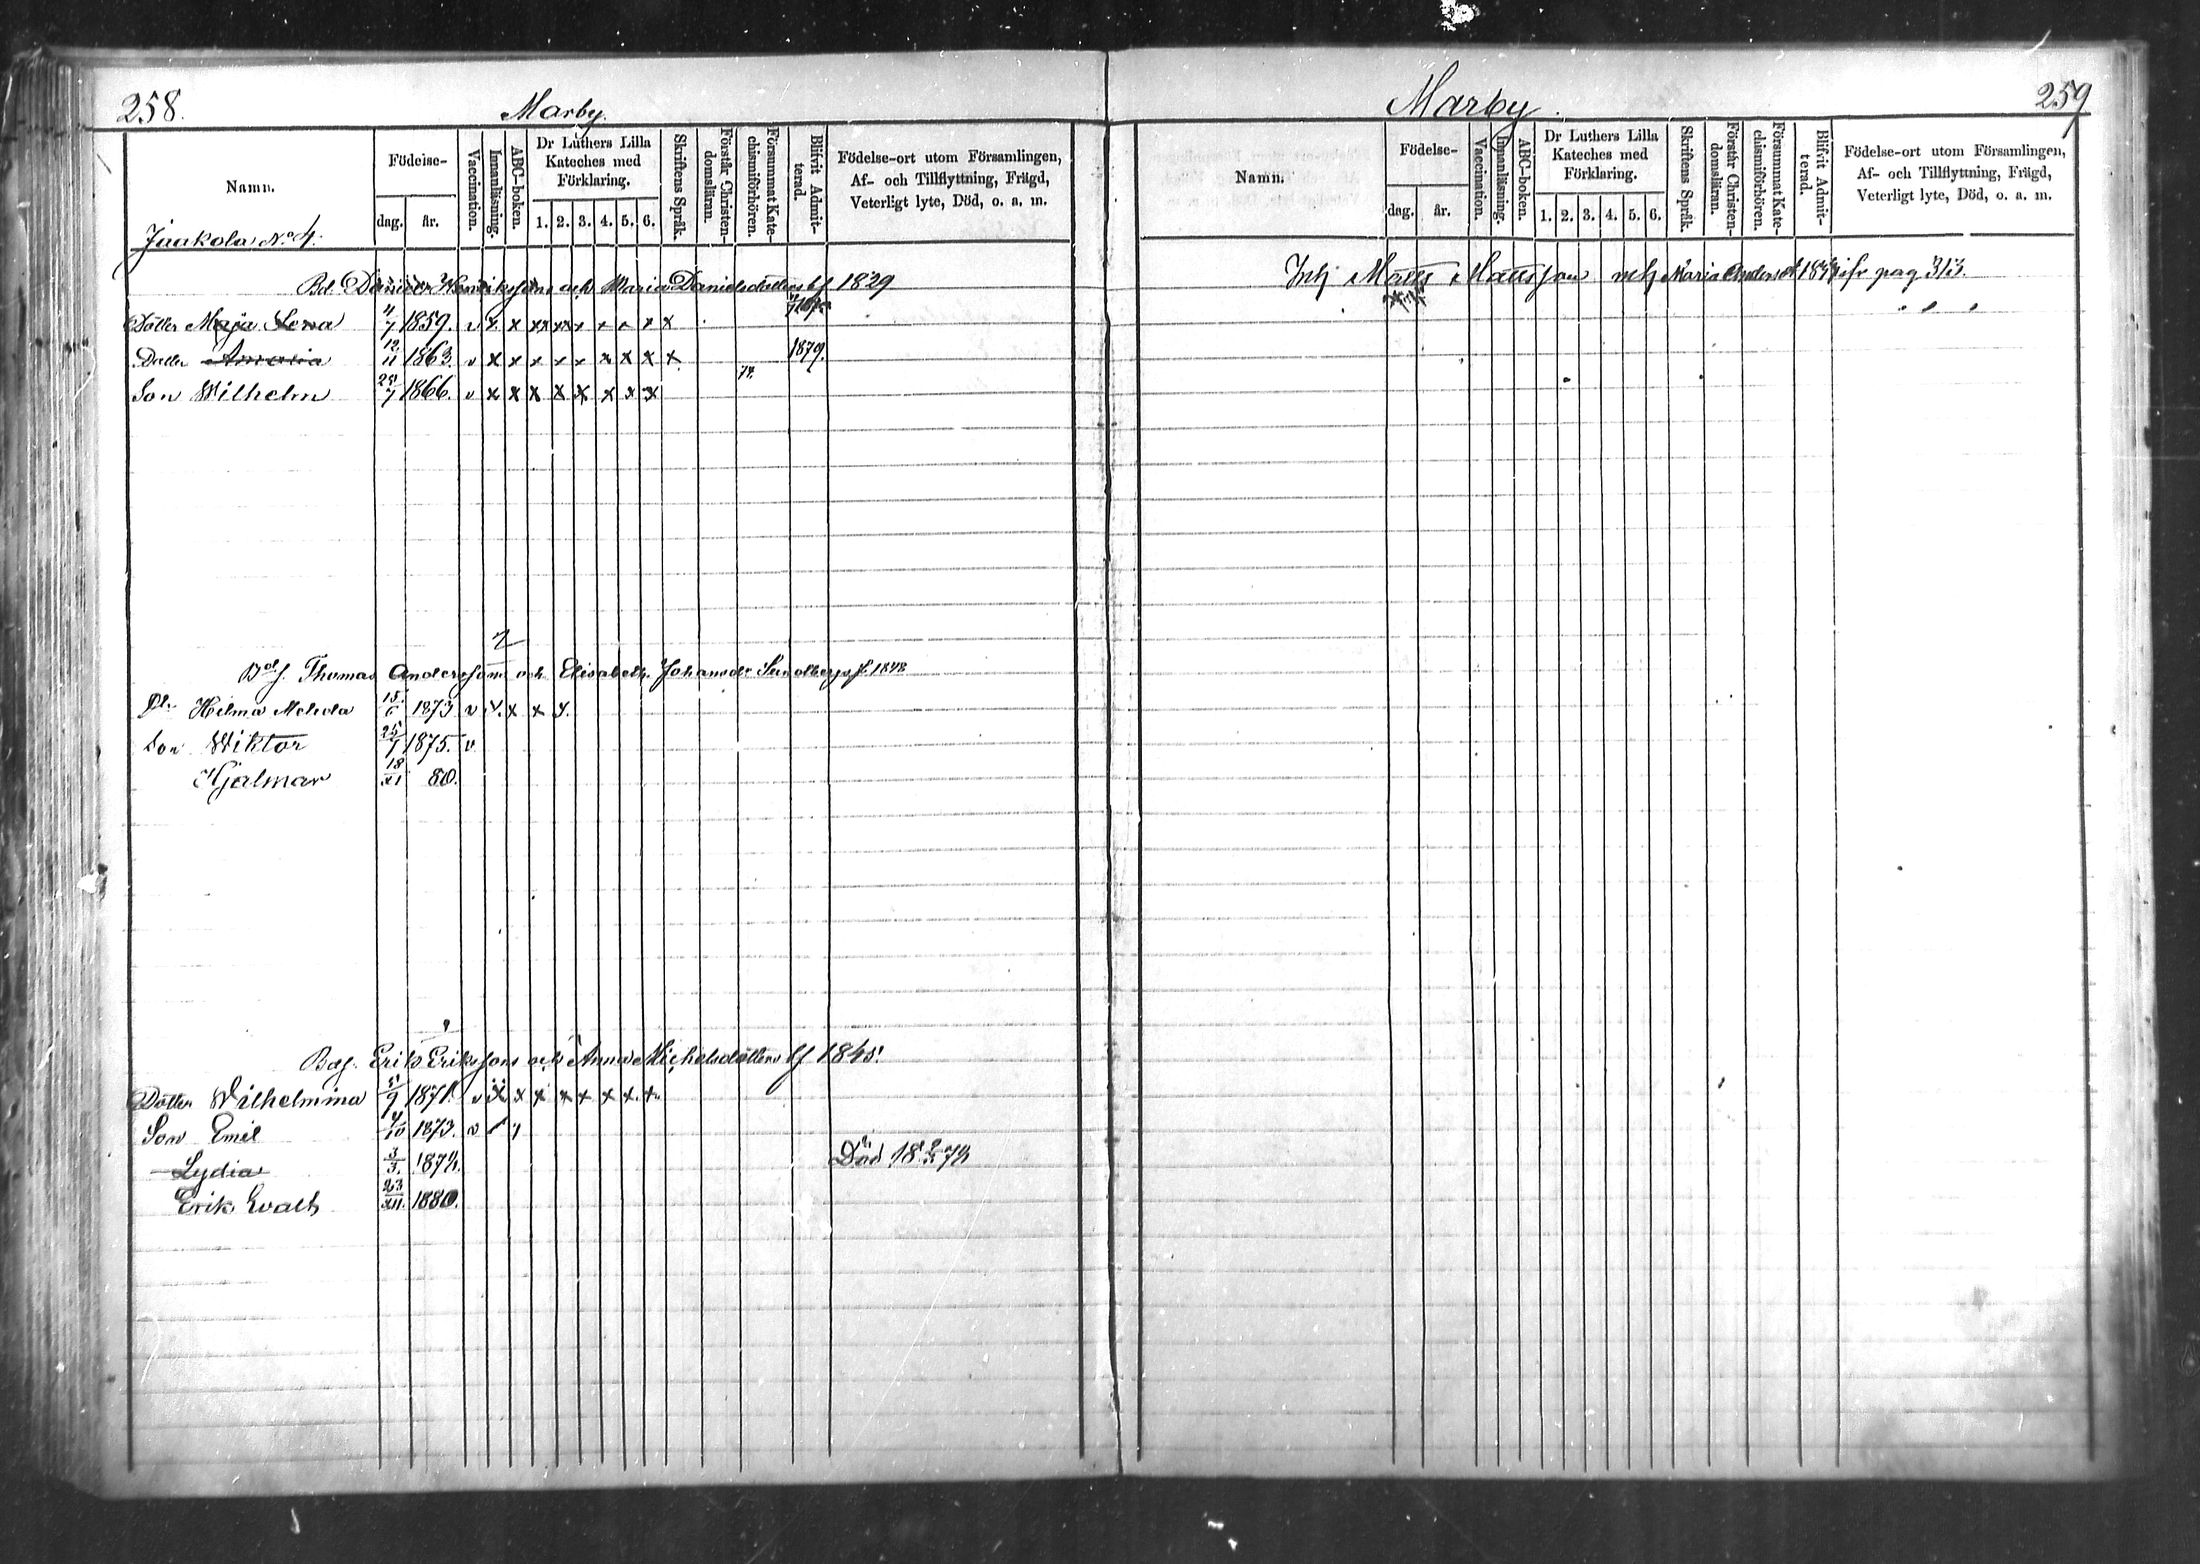 258.
Marby.
Namn.
Födelse-
dag. år.
Vaccination.
Innanläsning.
ABC-boken.
Dr Luthers Lilla Kateches med Förklaring.
1. 2. 3. 4. 5. 6.
Skriftens Språk.
Förstår Christendomsläran.
Försummat Katechismiförhören.
Blifvit Admitterad.
Födelse-ort utom Församlingen,
Af- och Tillflyttning, Frägd,
Veterligt lyte, Död, o. a. m.
Jaakola No 4.
Bd. Daniel Henriksons och Maria Danielsdotters bf 1829
Dotter Maja Lena 4/7 1859. v x x x x x x x x x
Dotter Amalia 12/11 1863. v x x x x x x x x x 1879.
Son Wilhelm 7 1866. v x x x x x x x x
Thomas Anderssons och Elisabeth Johansdr Sundbergs f. 1848
Hilma 15 1873 v x x
Son Wiktor 25/1 1875. v
Hjalmar 18/XI 80.
Erik Erikssons och Anna Michelsdotters bf 1845.
Dotter Wilhelmina 9 1871. v x x x x x x x x
Son Emil 4/10 1873. v
Lydia 3/3. Död
Erik Evalt 23/XII. 1880.
259
Marby.
Namn.
Födelse-
dag. år.
Vaccination.
Innanläsning.
ABC-boken.
Dr Luthers Lilla Kateches med Förklaring.
1. 2. 3. 4. 5. 6.
Skriftens Språk.
Förstår Christendomsläran.
Försummat Katechismiförhören.
Blifvit Admitterad.
Födelse-ort utom Församlingen,
Af- och Tillflyttning, Frägd,
Veterligt lyte, Död, o. a. m.
Matts Mattsson och Maria pag 313.